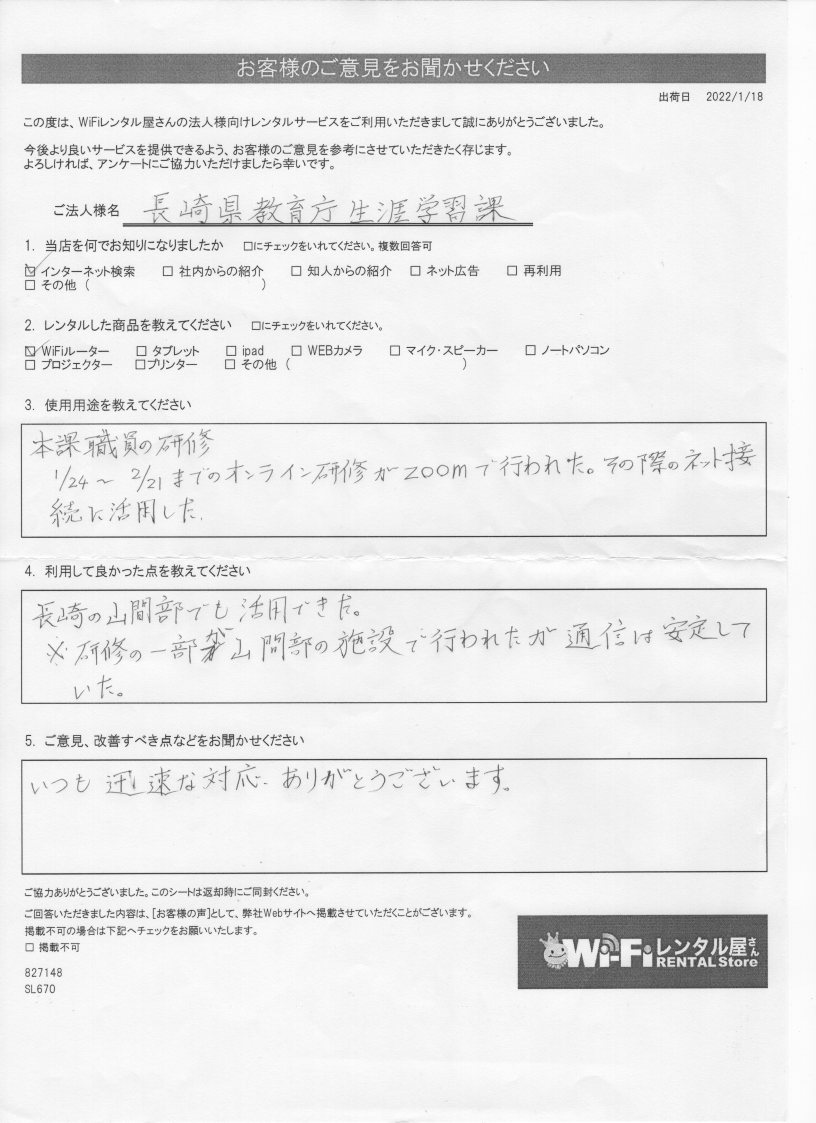 お客様のご意見をお聞かせください
出荷日 2022/1/18
この度は、WiFiレンタル屋さんの法人様向けレンタルサービスをご利用いただきまして誠にありがとうございました。
今後より良いサービスを提供できるよう、お客様のご意見を参考にさせていただきたく存じます。
よろしければ、アンケートにご協力いただけましたら幸いです。
ご法人様名 長崎県教育庁生涯学習課
1. 当店を何でお知りになりましたか □にチェックをいれてください。複数回答可
☑ インターネット検索 □ 社内からの紹介 □ 知人からの紹介 □ ネット広告 □ 再利用
□ その他 ( )
2. レンタルした商品を教えてください □にチェックをいれてください。
☑ WiFiルーター □ タブレット □ ipad □ WEBカメラ □ マイク・スピーカー □ ノートパソコン
□ プロジェクター □プリンター □ その他 ( )
3. 使用用途を教えてください
本課職員の研修
1/24 ~ 2/21までのオンライン研修がzoomで行われた。その際のネット接
続に活用した.
4. 利用して良かった点を教えてください
長崎の山間部でも活用できた。
※研修の一部が山間部の施設で行われたが通信は安定して
いた。
5. ご意見、改善すべき点などをお聞かせください
いつも迅速な対応ありがとうございます。
ご協力ありがとうございました。このシートは返却時にご同封ください。
ご回答いただきました内容は、[お客様の声]として、弊社Webサイトへ掲載させていただくことがございます。
掲載不可の場合は下記へチェックをお願いいたします。
□ 掲載不可
827148
SL670
Wi-Fiレンタル屋さん
RENTAL Store